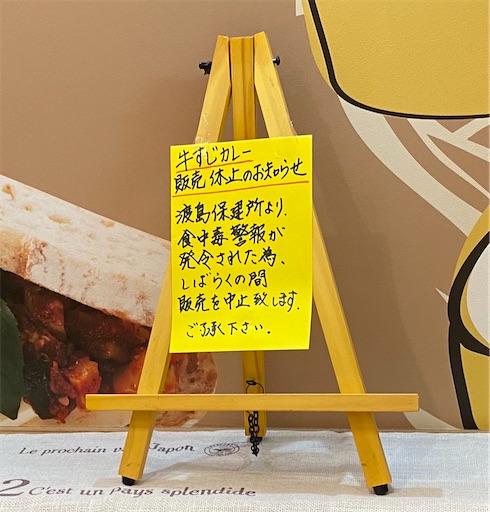 牛すじカレー
販売休止のお知らせ
渡島保健所より、
食中毒警報が
発令された為、
しばらくの間
販売を中止致します。
ご了承下さい。
Le prochain v Japon
2 C'est un Pays splendide